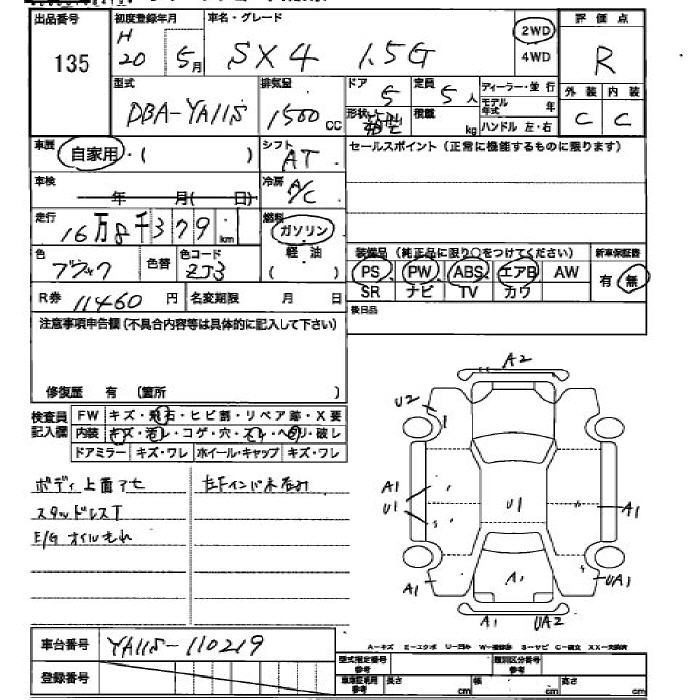 出品番号 初度登録年月 車名・グレード 評価点
135 H 20 5月 SX4 1.5G 2WD 4WD R
型式 排気量 ドア 定員 ディーラー・並行 外装 内装
DBA-YA11S 1500 CC 5 5人 モデル年式 年 C C
形状 積載 kg ハンドル 左・右
車歴 自家用・( ) シフト AT セールスポイント(正常に機能するものに限ります)
車検 年 月( 日) 冷房 A/C
走行 16万8千379km 燃料 ガソリン
軽油
( )
色 ブラック 色替 色コード ZJ3
装備品(純正品に限り○をつけてください) 新車保証書
PS PW ABS エアB AW 有・無
SR ナビ TV カワ
R券 11460円 名変期限 月 日 後日品
注意事項申告欄(不具合内容等は具体的に記入して下さい)
修復歴 有 (箇所 )
検査員記入欄 FW キズ・飛石・ヒビ割・リペア跡・X要
内装 キズ・汚レ・コゲ・穴・スレ・ヘタリ・破レ
ドアミラー キズ・ワレ ホイール・キャップ キズ・ワレ
ボディ上面アセ
スタッドレスT
E/Gオイルもれ
A2
U2
A1
U1
U1
A1
A1
A1
UA1
A1 UA2
A-キズ E-エクボ U-凹み W-補修跡 S-サビ C-腐食 XX-交換済
車台番号 YA11S-110219
登録番号
型式指定番号 参考 類別区分番号 参考
車庫証明用 参考 長さ cm 幅 cm 高さ cm